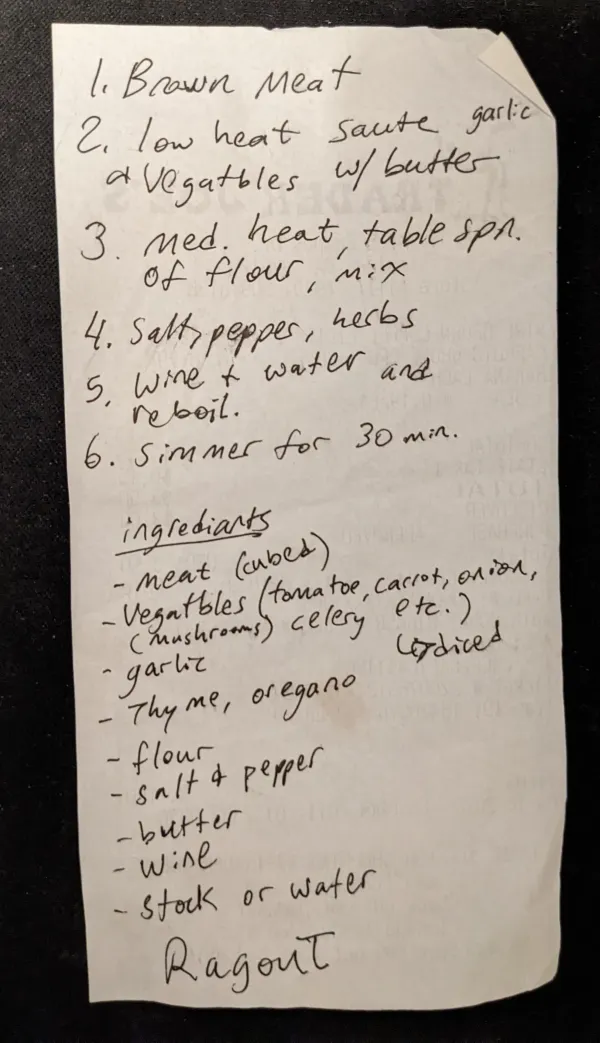 1. Brown Meat
2. low heat saute garlic
& Vegatbles w/ butter
3. Med. heat, table spn.
of flour, mix
4. Salt, pepper, herbs
5. Wine + water and
reboil.
6. Simmer for 30 min.
ingrediants
- meat (cubed)
- Vegatbles (tomatoe, carrot, onion,
(mushrooms) celery etc.)
↳ diced
- garlic
- Thyme, oregano
- flour
- salt & pepper
- butter
- wine
- stock or water
Ragout
TRADER JOE'S